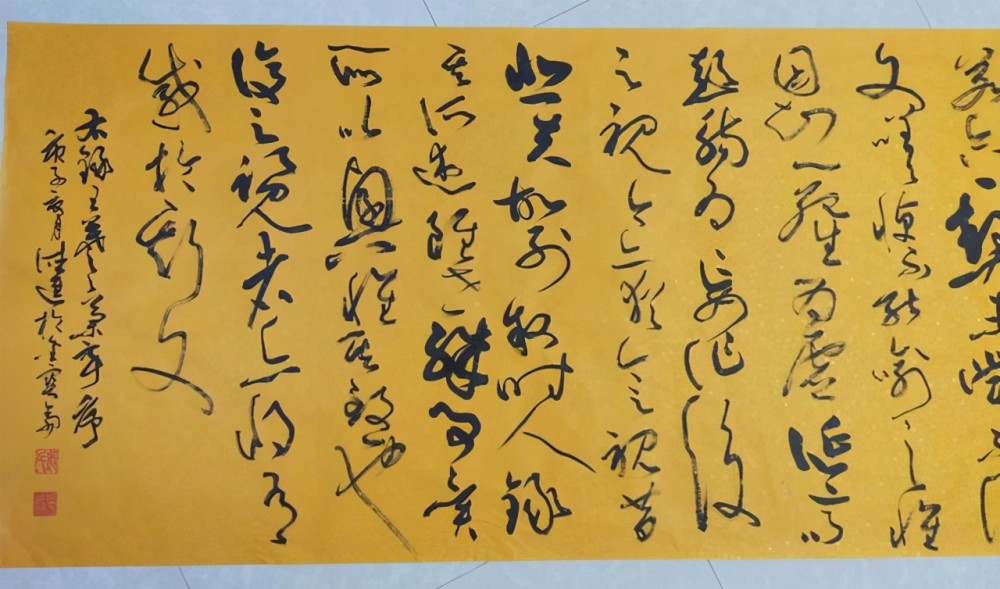 若合一契未嘗不臨
文嗟悼不能喻之懷
固知一死生為虛誕齊
彭殤為妄作後
之視今亦猶今之視昔
悲夫故列敘時人錄
其所述雖世殊事異
所以興懷其致一也
後之覽者亦將有
感於斯文
右錄王羲之蘭亭序
庚子夏月